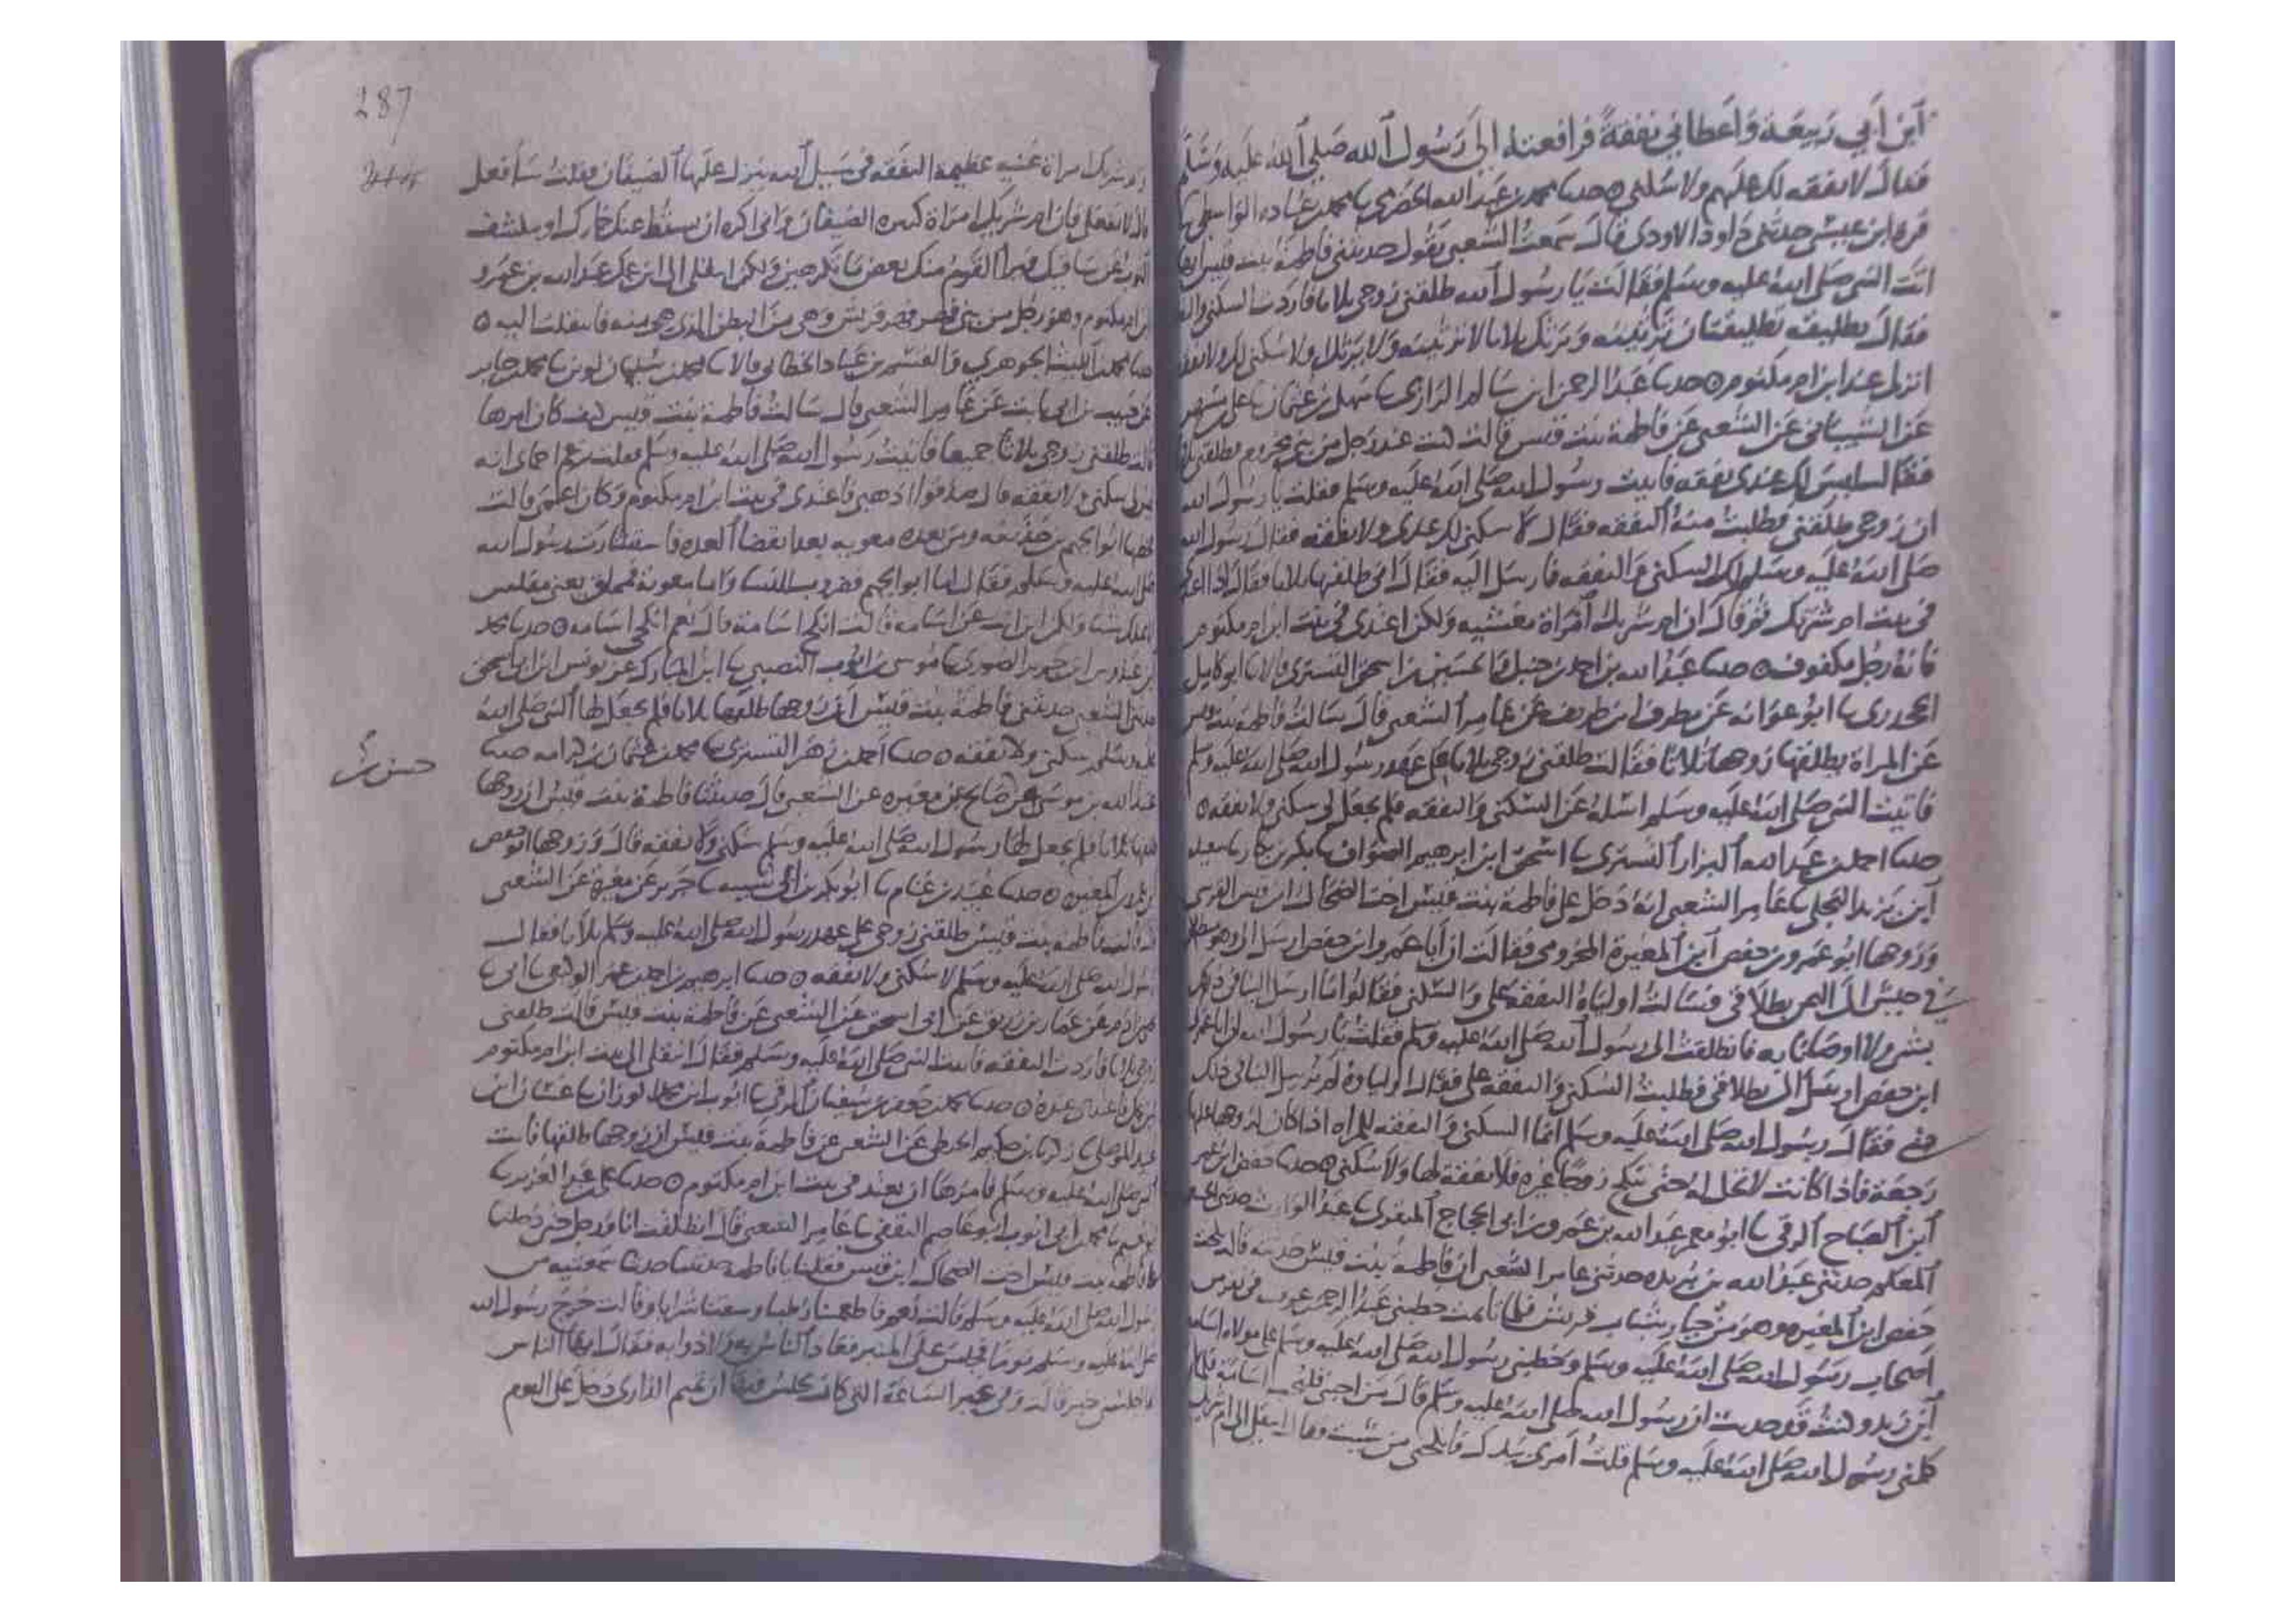 ابن ابي ربيعة واعطاني نفقة فرافعته الى رسول الله صلى الله عليه وسلم
فقال لا نفقه لك عليهم ولا سكنى ٥ حدثنا محمد بن عبد الله الحضرمي ثنا محمد بن عباده الواسطي ثنا
قره ابن عيسى حدثني داود الاودي قال سمعت الشعبي يقول حدثتني فاطمة بنت قيس انها
اتت النبي صلى الله عليه وسلم فقالت يا رسول الله طلقني زوجي ثلاثا فاردت السكنى
فقال تطليقه تطليقتان
انزلي عند ابن ام مكتوم ٥ حدثنا عبد الرحمن ابن سالم الرازي ثنا سهل بن عثمان ثنا علي بن مسهر
عن الشيباني عن الشعبي عن فاطمة بنت قيس قالت كنت عند رجل من بني مخزوم فطلقني
فقال ليس لك عندي نفقه فاتيت رسول الله صلى الله عليه وسلم فقلت يا رسول الله
ان زوجي طلقني فطلبت منه النفقه فقال لا سكنى لك عندي ولا نفقه فقال رسول الله
صلى الله عليه وسلم لك السكنى والنفقه فارسل اليه فقال اني طلقتها ثلاثا فقال
في بيت ام شريك ثم قال ان ام شريك امراة ولكن اعتدي في بيت ابن ام مكتوم
فانه رجل مكفوف ٥ حدثنا عبد الله بن احمد بن حنبل والحسين بن اسحق التستري قالا ثنا ابو كامل
الجحدري ثنا ابو عوانه عن مطرف ابن طريف عن عامر الشعبي قال سالت فاطمة بنت قيس
عن المراة يطلقها زوجها ثلاثا فقالت طلقني زوجي ثلاثا على عهد رسول الله صلى الله عليه وسلم
فاتيت النبي صلى الله عليه وسلم اسله عن السكنى والنفقه فلم يجعل لي سكنى ولا نفقه ٥
حدثنا احمد بن عبد الله البزار التستري ثنا اسحق ابن ابرهيم الصواف ثنا بكر بن بكار ثنا سعيد
ابن يزيد البجلي ثنا عامر الشعبي انه دخل على فاطمة بنت قيس اخت الضحاك ابن قيس القرشي
وزوجها ابو عمرو بن حفص ابن المغيرة المخزومي فقالت ان ابا عمرو ابن حفص ارسل الي وهو منطلق
في جيش الى اليمن بطلاقي فسالت اولياه النفقة علي والسكنى فقالوا ما ارسل الينا في ذلك
بشي ولا اوصانا به فانطلقت الى رسول الله صلى الله عليه وسلم فقلت يا رسول الله ان ابا عمرو
ابن حفص ارسل الي بطلاقي فطلبت السكنى والنفقة علي فقال اولياوه لم يرسل الينا في ذلك
بشي فقال رسول الله صلى الله عليه وسلم انما السكنى والنفقه للمراه اذا كان لزوجها عليها
رجعة فاذا كانت لا تحل له حتى تنكح زوجا غيره فلا نفقة لها ولا سكنى ٥ حدثنا حفص ابن عمر
ابن الصباح الرقي ثنا ابو معمر عبد الله بن عمرو بن ابي الحجاج المنقري ثنا عبد الوارث حدثني
المعلم حدثني عبد الله بن بريده حدثني عامر الشعبي ان فاطمة بنت قيس حدثته قالت نكحت
حفص ابن المغيره وهو من خيار شباب قريش فلما تايمت خطبني عبد الرحمن بن عوف في نفر من
اصحاب رسول الله صلى الله عليه وسلم وخطبني رسول الله صلى الله عليه وسلم على مولاه اسامه
ابن زيد وكنت قد حدثت ان رسول الله صلى الله عليه وسلم قال من احبني فليحب اسامة فلما
كلمني رسول الله صلى الله عليه وسلم قلت امري بيدك فانكحني من شيت فقال انتقلي الى ام شريك
287
وام شريك امراة غنيه عظيمة النفقه في سبيل الله ينزل عليها الضيفان فقلت سافعل
قال لا تفعلي فان ام شريك امراة كثيره الضيفان واني اكره ان يسقط عنك خمارك او ينكشف
الثوب عن ساقيك فيرى القوم منك بعض ما تكرهين ولكن انتقلي الى ابن عمك عبد الله بن عمرو
ابن ام مكتوم وهو رجل من بني فهر فهر قريش وهي من البطن الذي هي منه فانتقلت اليه ٥
حدثنا محمد بن الليث الجوهري والقسم بن عباد الخطابي قالا ثنا محمد بن سليمان لوين ثنا محمد بن جابر
عن حبيب بن ابي ثابت عن عامر الشعبي قال سالت فاطمة بنت قيس كيف كان امرها
قالت طلقني زوجي ثلاثا جميعا فاتيت رسول الله صلى الله عليه وسلم فقلت زعم احماي انه
ليس لي سكنى ولا نفقه قال صدقوا اذهبي فاعتدي في بيت ابن ام مكتوم وكان اعمى قالت
فخطبها ابو الجهم بن حذيفه ومن بعده معويه بعد انقضا العده فاستشارت رسول الله
صلى الله عليه وسلم فقال اما ابو الجهم فضروب للنسا واما معوية فمملق يعني مفلس
ولكن اين انت عن اسامه قالت انكح اسامة قال نعم انكحي اسامه ٥ حدثنا محمد
بن عبدوس ابن جرير الصوري ثنا موسى بن ايوب النصيبي ثنا ابن المبارك عن يونس ابن ابي اسحق
حدثني الشعبي حدثتني فاطمة بنت قيس ان زوجها طلقها ثلاثا فلم يجعل لها النبي صلى الله
عليه وسلم سكنى ولا نفقه ٥ حدثنا احمد بن زهير التستري ثنا محمد بن عثمان بن كرامه حدثنا
عبد الله بن موسى عن صالح عن مغيره عن الشعبي قال حدثتنا فاطمة بنت قيس ان زوجها
طلقها ثلاثا فلم يجعل لها رسول الله صلى الله عليه وسلم سكنى ولا نفقه قال وزوجها ابو حفص
المغيره ٥ حدثنا عبيد بن غنام ثنا ابو بكر بن ابي شيبه ثنا جرير عن مغيرة عن الشعبي
قال قالت فاطمة بنت قيس طلقني زوجي على عهد رسول الله صلى الله عليه وسلم ثلاثا فقال
رسول الله صلى الله عليه وسلم لا سكنى ولا نفقه ٥ حدثنا ابرهيم بن احمد بن عمر الوكيعي ثنا ابي ثنا
يحيى بن ادم عن عمار بن رزيق عن ابي اسحق عن الشعبي عن فاطمة بنت قيس قالت طلقني
زوجي ثلاثا فاردت النفقه فاتيت النبي صلى الله عليه وسلم فقال انتقلي الى بيت ابن ام مكتوم
فاعتدي عنده ٥ حدثنا محمد بن جعفر بن سفيان الرقي ثنا ايوب ابن محمد الوزان ثنا غسان ابن
عبيد الموصلي ثنا زكريا بن حكيم الحبطي عن الشعبي عن فاطمة بنت قيس ان زوجها طلقها فاتت
النبي صلى الله عليه وسلم فامرها ان تعتد في بيت ابن ام مكتوم ٥ حدثنا علي بن عبد العزيز ثنا
ابو نعيم ثنا محمد بن ابي ايوب ابو عاصم الثقفي ثنا عامر الشعبي قال انطلقت انا ورجل حتى دخلنا
على فاطمة بنت قيس اخت الضحاك ابن قيس فقلنا يا فاطمة حدثينا حديثا سمعتيه من
رسول الله صلى الله عليه وسلم قالت نعم فاطعمتنا رطبا وسقتنا شرابا وقالت خرج رسول الله
صلى الله عليه وسلم يوما فجلس على المنبر فقال ايها الناس
قالت وفي غير الساعة التي كان يجلس فيها ان تميم الداري دخل علي اليوم